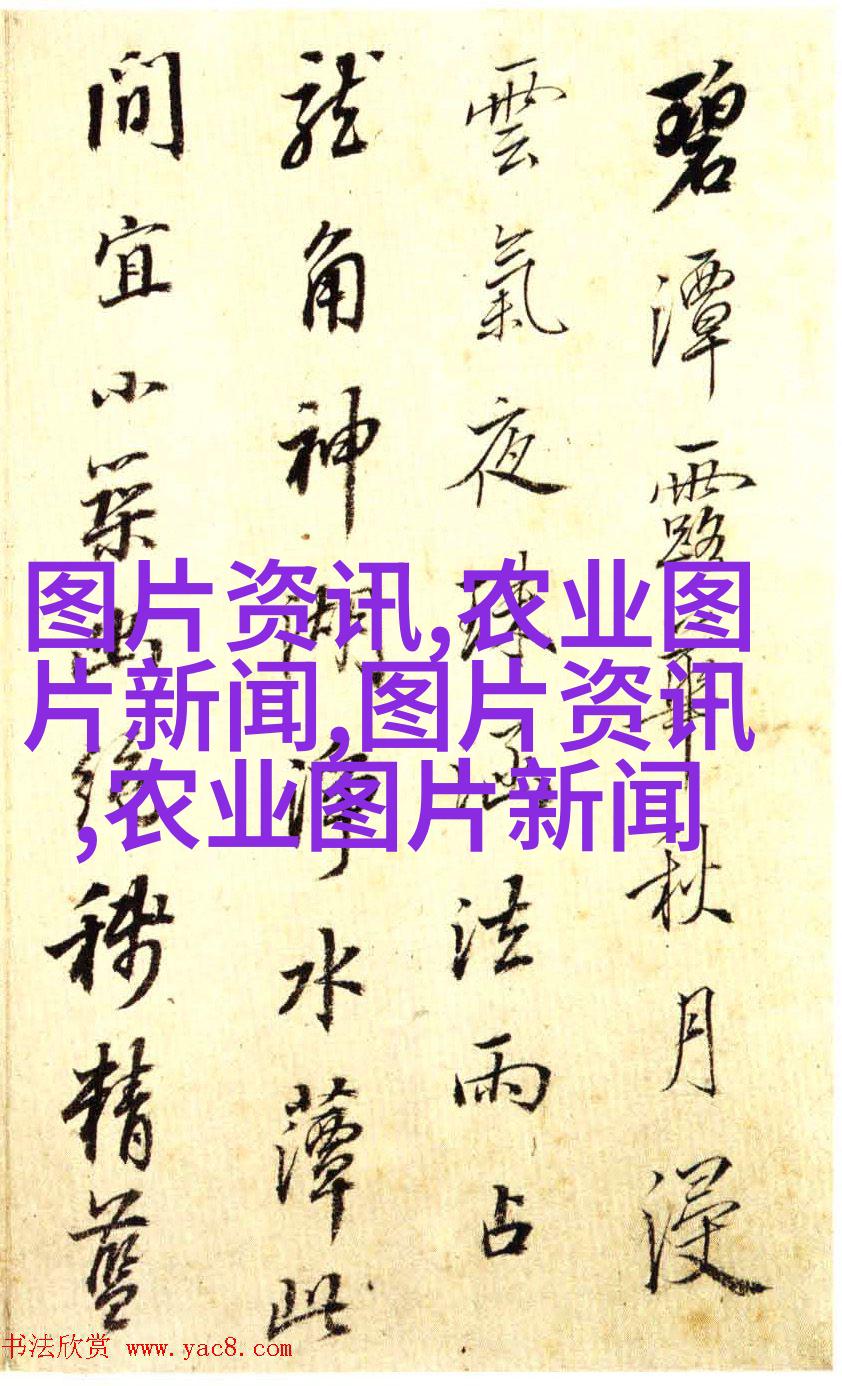 碧潭露華秋月浸
雲氣夜珠涵法雨占
龍角神湖淨水藫此
間宜小築幽絕稱精藍
图片资讯,农业图
片新闻,图片资讯
,农业图片新闻
书法欣赏 www.yac8.com